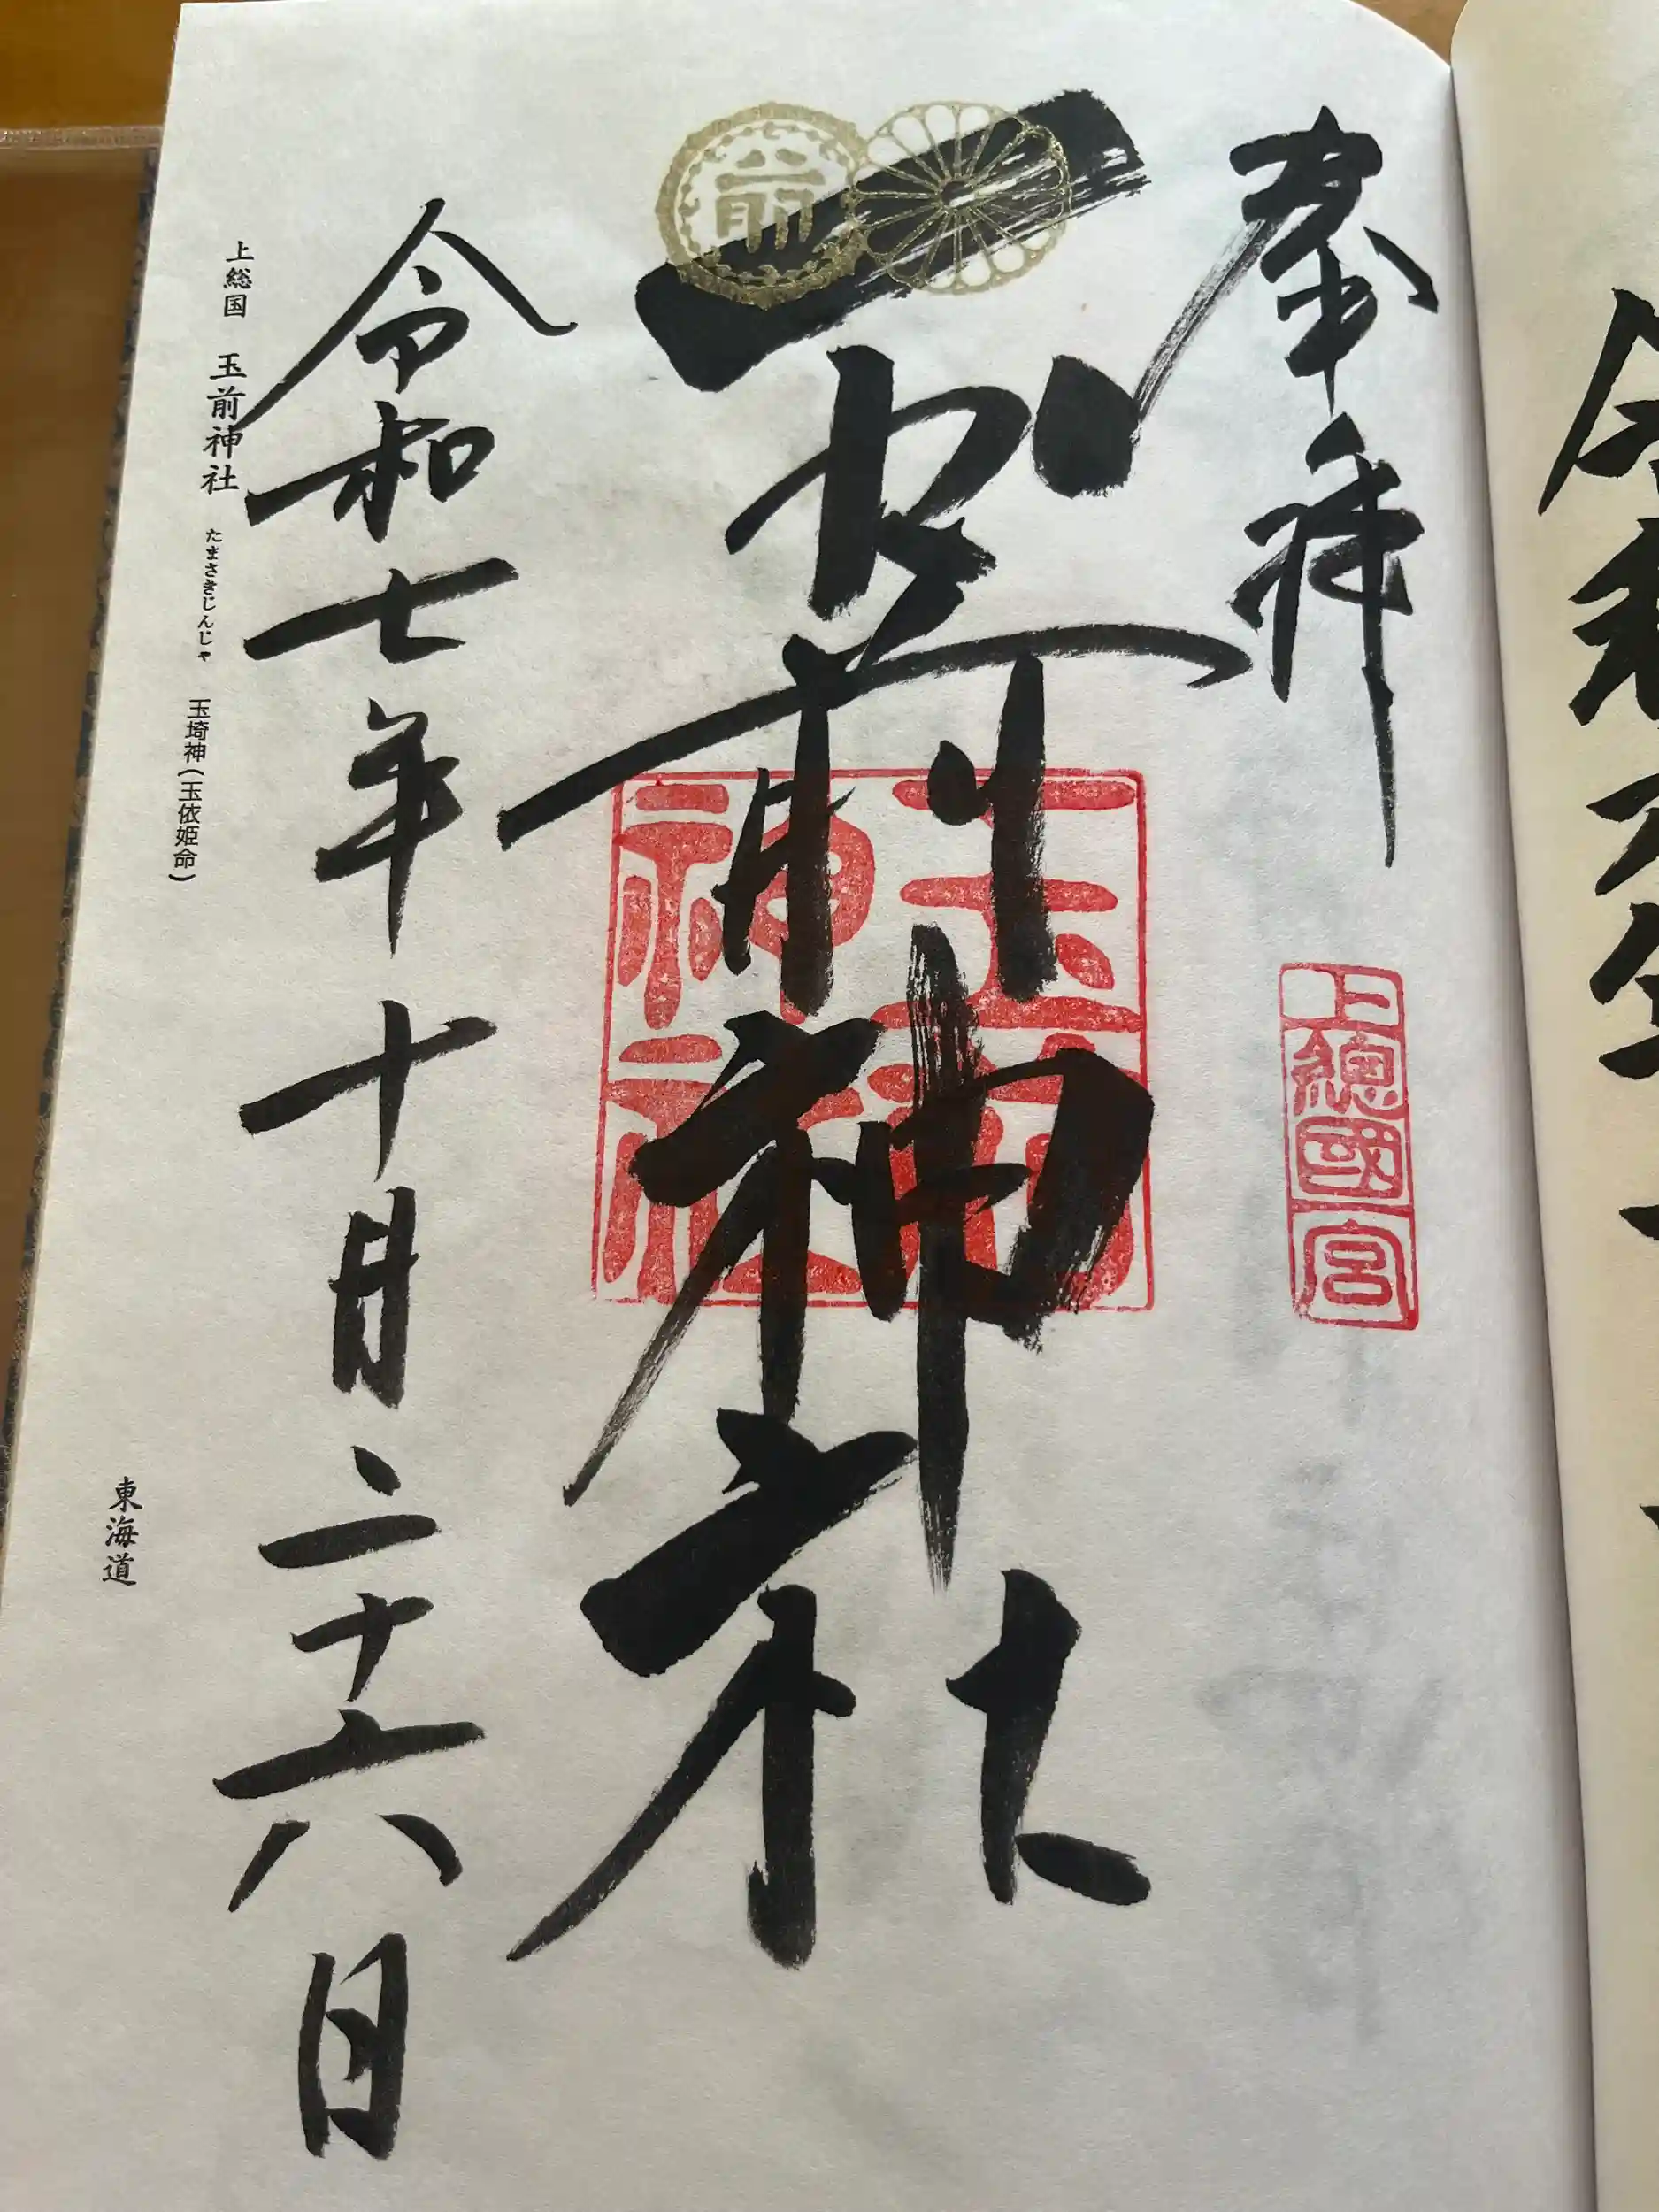 奉拝
上總國一宮
前
玉前神社
玉前
神社
令和七年十月二十六日
上総国 玉前神社 たまさきじんじゃ 玉埼神(玉依姫命)
東海道